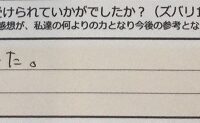 けられていかがでしたか?(ズバリ1
感想が、私達の何よりの力となり今後の参考とな
た。